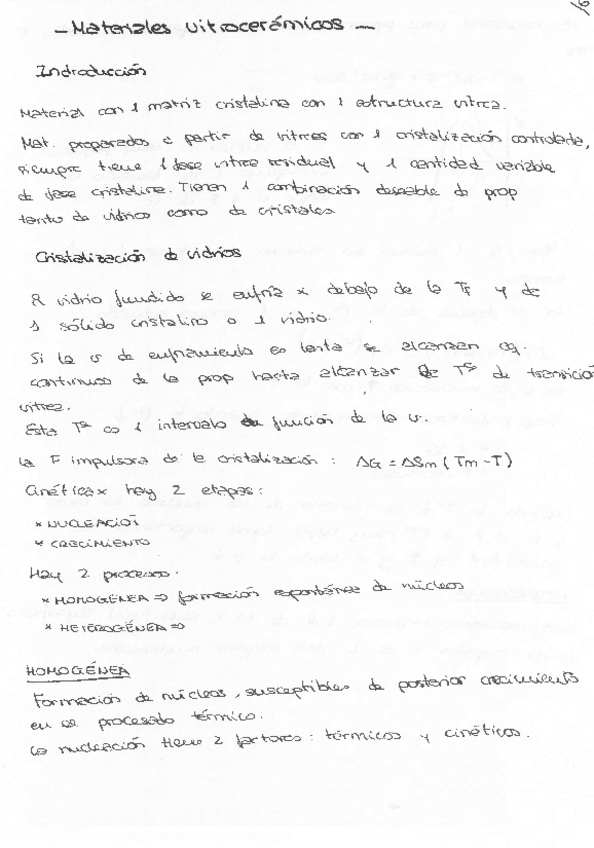 - Materiales vitrocerámicos -
Indroducción
Material con 1 matriz cristalina con 1 estructura vitrea.
Mat. preparados a partir de vitreos con 1 cristalización controlada,
siempre tiene 1 fase vitrea residual y 1 cantidad variable
de fase cristalina. Tienen 1 combinación deseable de prop
tanto de vidrios como de cristales.
Cristalización de vidrios
El vidrio fundido se enfría x debajo de la Tf y da
1 sólido cristalino o 1 vidrio.
Si la v de enfriamiento es lenta se alcanzan
continuos de la prop hasta alcanzar la Tª de transición
vitrea.
Esta Tª es 1 intervalo función de la v.
la F impulsora de la cristalización : ΔG = ΔSm (Tm - T)
Cinética x hay 2 etapas :
* NUCLEACIÓN
* CRECIMIENTO
Hay 2 procesos.
* HOMOGÉNEA => formación espontánea de núcleos
* HETEROGÉNEA =>
HOMOGÉNEA
Formación de núcleos, susceptibles de posterior crecimiento
en el procesado térmico.
La nucleación tiene 2 factores : térmicos y cinéticos.